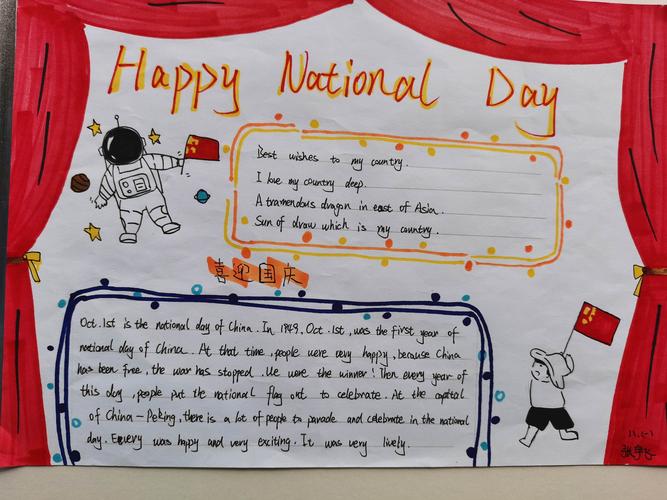 Happy National Day
Best wishes to my country.
I love my country deep.
A tramendous dragon in east of Asia.
Sun of draw which is my country.
喜迎国庆
Oct.1st is the national day of China. In 1949, Oct.1st, was the first year of
national day of China. At that time, people were very happy, because China
has been free, the war has stopped. We were the winner! Then every year of
this day, people put the national flag out to celebrate. At the capital
of China - Peking, there is a lot of people to parade and celebrate in the national
day. Envery was happy and very exciting. It was very lively.